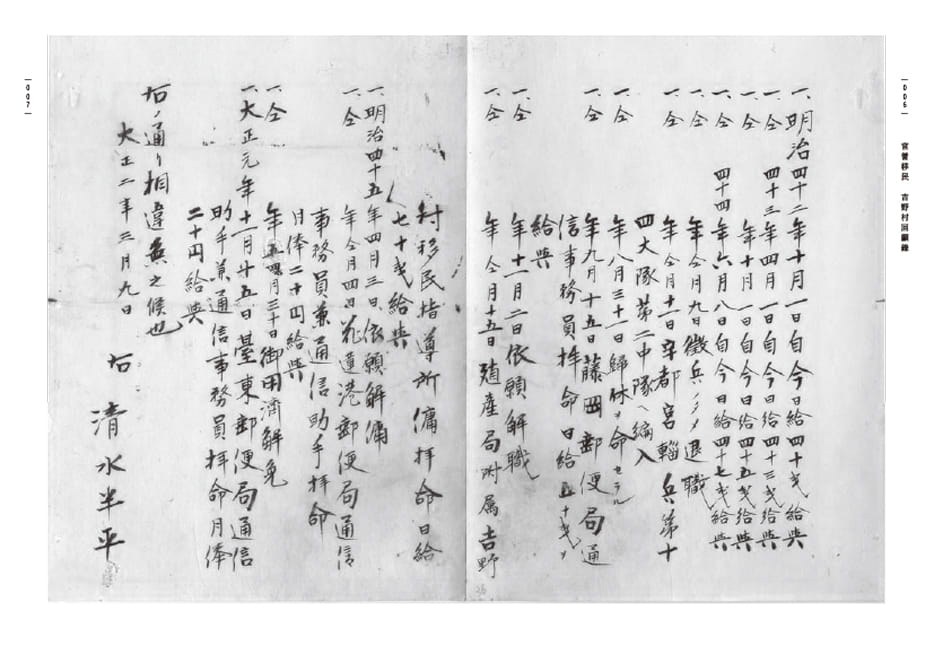 一、明治四十二年十月一日自今日給四十戋給与
一、仝 四十三年四月一日自今日給四十三戋給与
一、仝 年十月一日自今日給四十五戋給与
一、仝 四十四年六月八日自今日給四十七戋給与
一、仝 年仝月九日徴兵ノタメ退職
一、仝 年仝月十一日宇都宮輜兵第十
四大隊第二中隊ヘ編入
一、仝 年八月三十一日歸休ヲ命セラル
一、仝 年九月十五日藤岡郵便局通
信事務員拝命日給五十戋ヲ
給与
一、仝 年十一月二日依願解職
一、仝 年仝月十五日殖産局附属吉野
村移民指導所傭拝命日給
七十戋給与
一、明治四十五年四月三日依願解傭
一、仝 年仝月四日花蓮港郵便局通信
事務員兼通信助手拝命
月俸二十円給与
一、仝 年五月三十日御用済解免
一、大正元年十一月廿五日臺東郵便局通信
助手兼通信事務員拝命月俸
二十円給与
右ノ通リ相違無之候也
大正二年三月九日
右 清水半平
006
官營移民 吉野村回顧錄
007